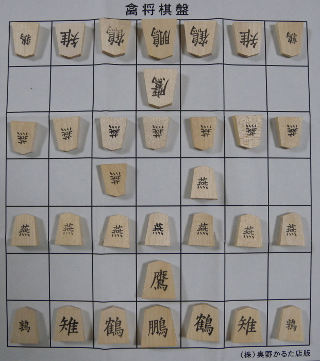 禽将棋盤
鶉 雉 鶴 鵬 鶴 雉 鶉
鷹
燕 燕 燕 燕 燕 燕 燕
燕 燕
燕 燕 燕 燕 燕 燕 燕
鷹
鶉 雉 鶴 鵬 鶴 雉 鶉
(株)奥野かるた店版